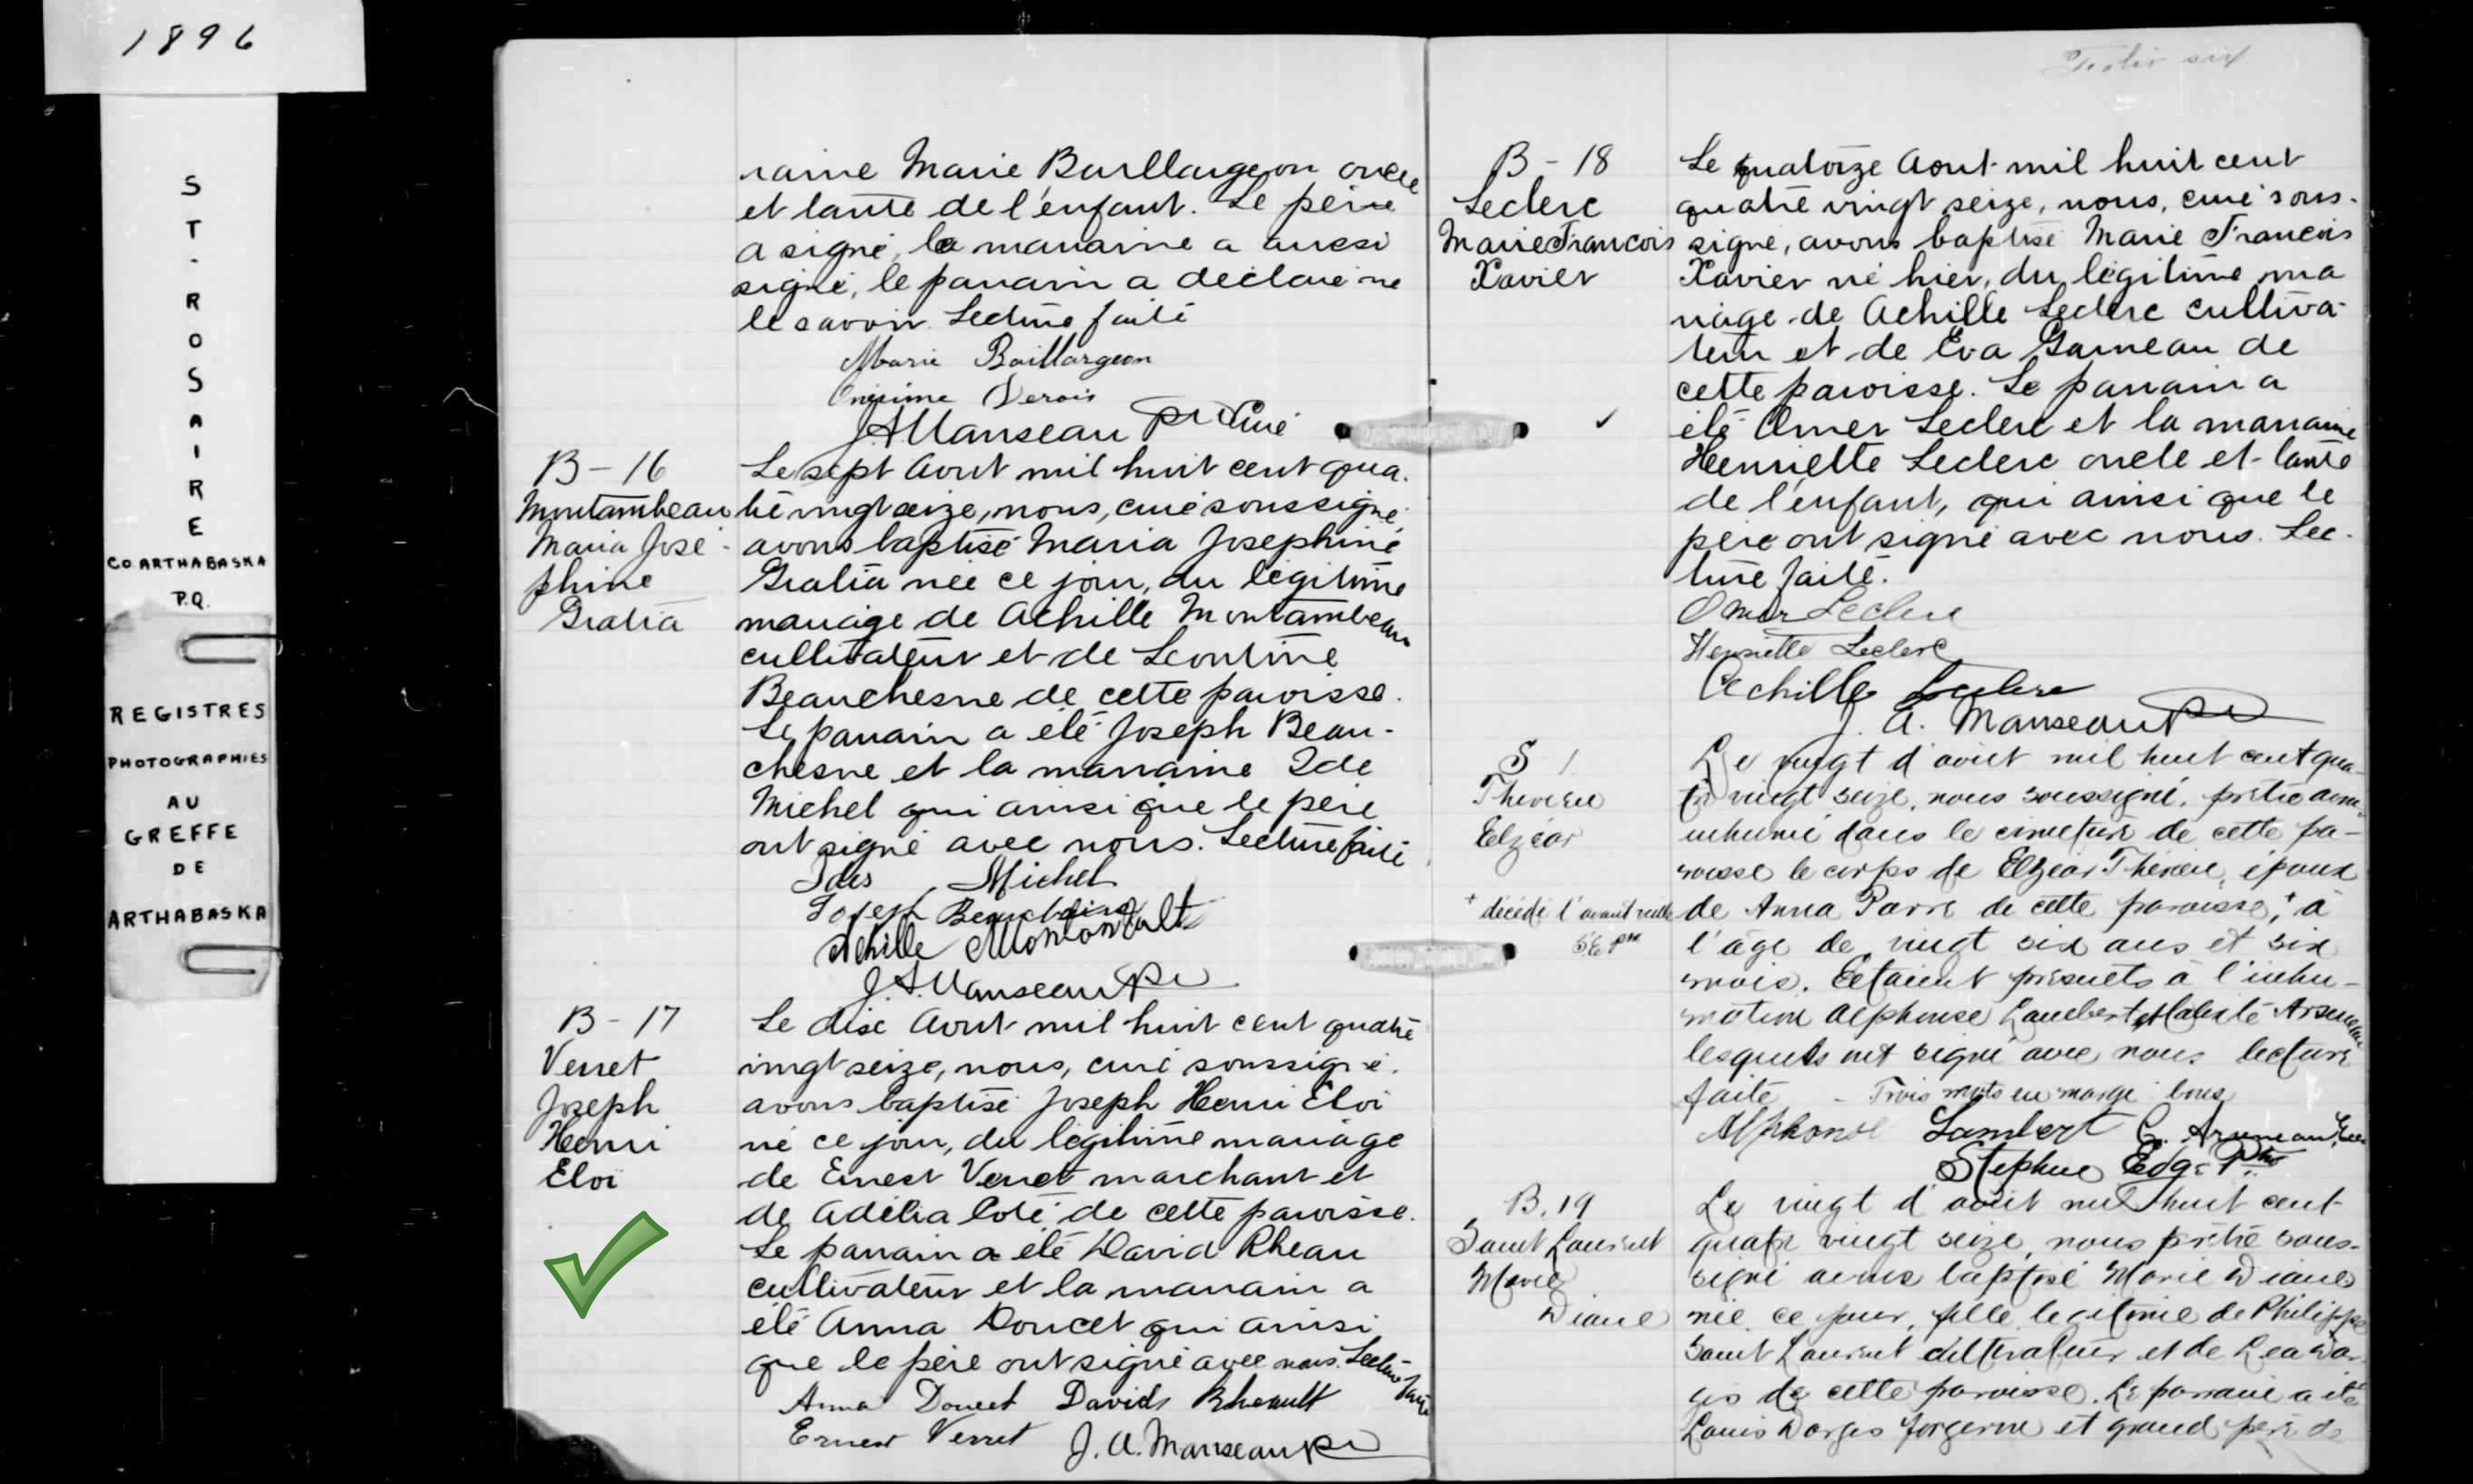 1896
ST-ROSAIRE
CO. ARTHABASKA
P.Q.
REGISTRES
PHOTOGRAPHIES
AU
GREFFE
DE
ARTHABASKA
raine Marie Baillargeon oncle
et tante de l'enfant. Le père
a signé, la marraine a aussi
signé, le parrain a déclaré ne
le savoir. Lecture faite
Marie Baillargeon
Onésime
J.A Manseau Ptre Curé
B - 16
Montambeau
Maria José-
phine
Gratia
Le sept Aout mil huit cent qua-
tre vingt seize, nous, curé soussigné,
avons baptisé Maria Josephine
Gratia née ce jour, du légitime
mariage de Achille Montambeau
cultivateur et de Leontine
Beauchesne de cette paroisse.
Le parrain a été Joseph Beau-
chesne et la marraine Ida
Michel qui ainsi que le père
ont signé avec nous. Lecture faite
Michel
Joseph
Achille
J.A. Manseau Ptre
B - 17
Verret
Joseph
Henri
Eloi
Le dix Aout mil huit cent quatre
vingt seize, nous, curé soussigné,
avons baptisé Joseph Henri Eloi
né ce jour, du légitime mariage
de Ernest Verret marchant et
de Adélia Coté de cette paroisse.
Le parrain a été David Rheau
cultivateur et la marrain a
été Anna Doucet qui ainsi
que le père ont signé avec nous. Lecture faite
Anna Doucet Davids Rheault
Ernest Verret J. A. Manseau Ptre
Folio six
B - 18
Leclerc
Marie Francois
Xavier
Le quatorze Aout mil huit cent
quatre vingt seize, nous, curé sous-
signé, avons baptisé Marie Francois
Xavier né hier, du légitime ma
riage de Achille Leclerc cultiva-
teur et de Eva Garneau de
cette paroisse. Le parrain a
été Omer Leclerc et la marraine
Henriette Leclerc oncle et tante
de l'enfant, qui ainsi que le
père ont signé avec nous. Lec-
ture faite.
Omer Leclerc
Henriette Leclerc
Achille Leclerc
J. A. Manseau Ptre
S 1
Elzéar
+ décédé l'avant veille
Le vingt d'août mil huit cent qua-
tre vingt seize, nous soussigné, prêtre avons
inhumé dans le cimetière de cette pa-
roisse le corps de Elzéar, époux
de Anna Parré de cette paroisse, + à
l'âge de vingt six ans et six
mois. Etaient présents à l'inhu-
mation Alphonse Lambert et Arseneau
lesquels ont signé avec nous lecture
faite - Trois mots en marge bons
Alphonse Lambert C. Arseneau
Ptre
B. 19
Saint Laurent
Marie
Diane
Le vingt d'août mil huit cent
quatre vingt seize, nous prêtre sous-
signé avons baptisé Marie Diane
née ce jour, fille légitime de Philippe
Saint Laurent cultivateur et de Lea Dar
gis de cette paroisse. Le parrain a été
Louis Dargis forgeron et grand père de